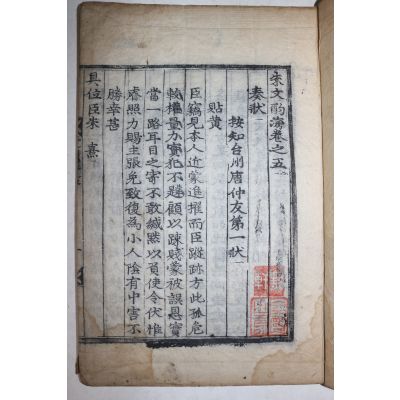 朱文酌海卷之五
奏狀
按知台州唐仲友第一狀
貼黃
臣竊見本人近蒙進擢而臣蹤跡方此孤危
較權量力實犯不韙顧以踈賤蒙被誤恩實
當一路耳目之寄不敢緘默以負使令伏惟
睿照力賜主張免致復為小人陰有中害不
勝幸甚
具位臣朱熹